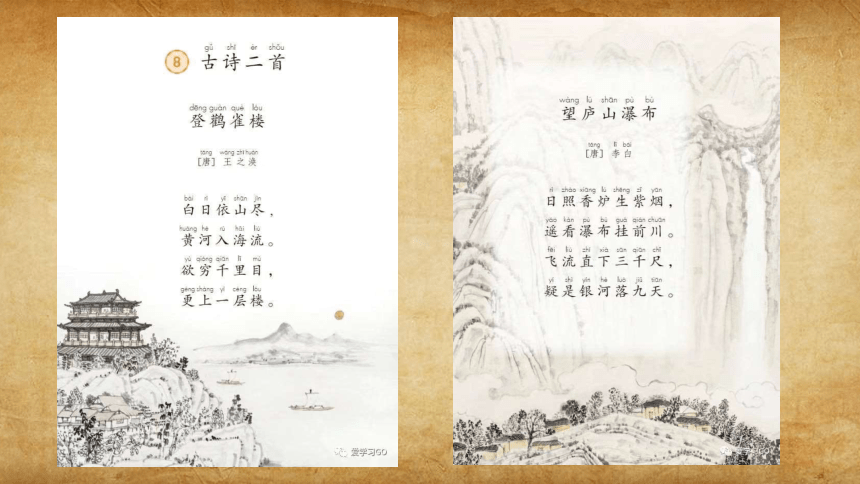 gǔ shī èr shǒu
8 古诗二首
dēng guàn què lóu
登鹳雀楼
táng wáng zhī huàn
[唐] 王之涣
bái rì yī shān jìn
白日依山尽，
huáng hé rù hǎi liú
黄河入海流。
yù qióng qiān lǐ mù
欲穷千里目，
gèng shàng yì céng lóu
更上一层楼。
爱学习GO
wàng lú shān pù bù
望庐山瀑布
táng lǐ bái
[唐] 李白
rì zhào xiāng lú shēng zǐ yān
日照香炉生紫烟，
yáo kàn pù bù guà qián chuān
遥看瀑布挂前川。
fēi liú zhí xià sān qiān chǐ
飞流直下三千尺，
yí shì yín hé luò jiǔ tiān
疑是银河落九天。
爱学习GO